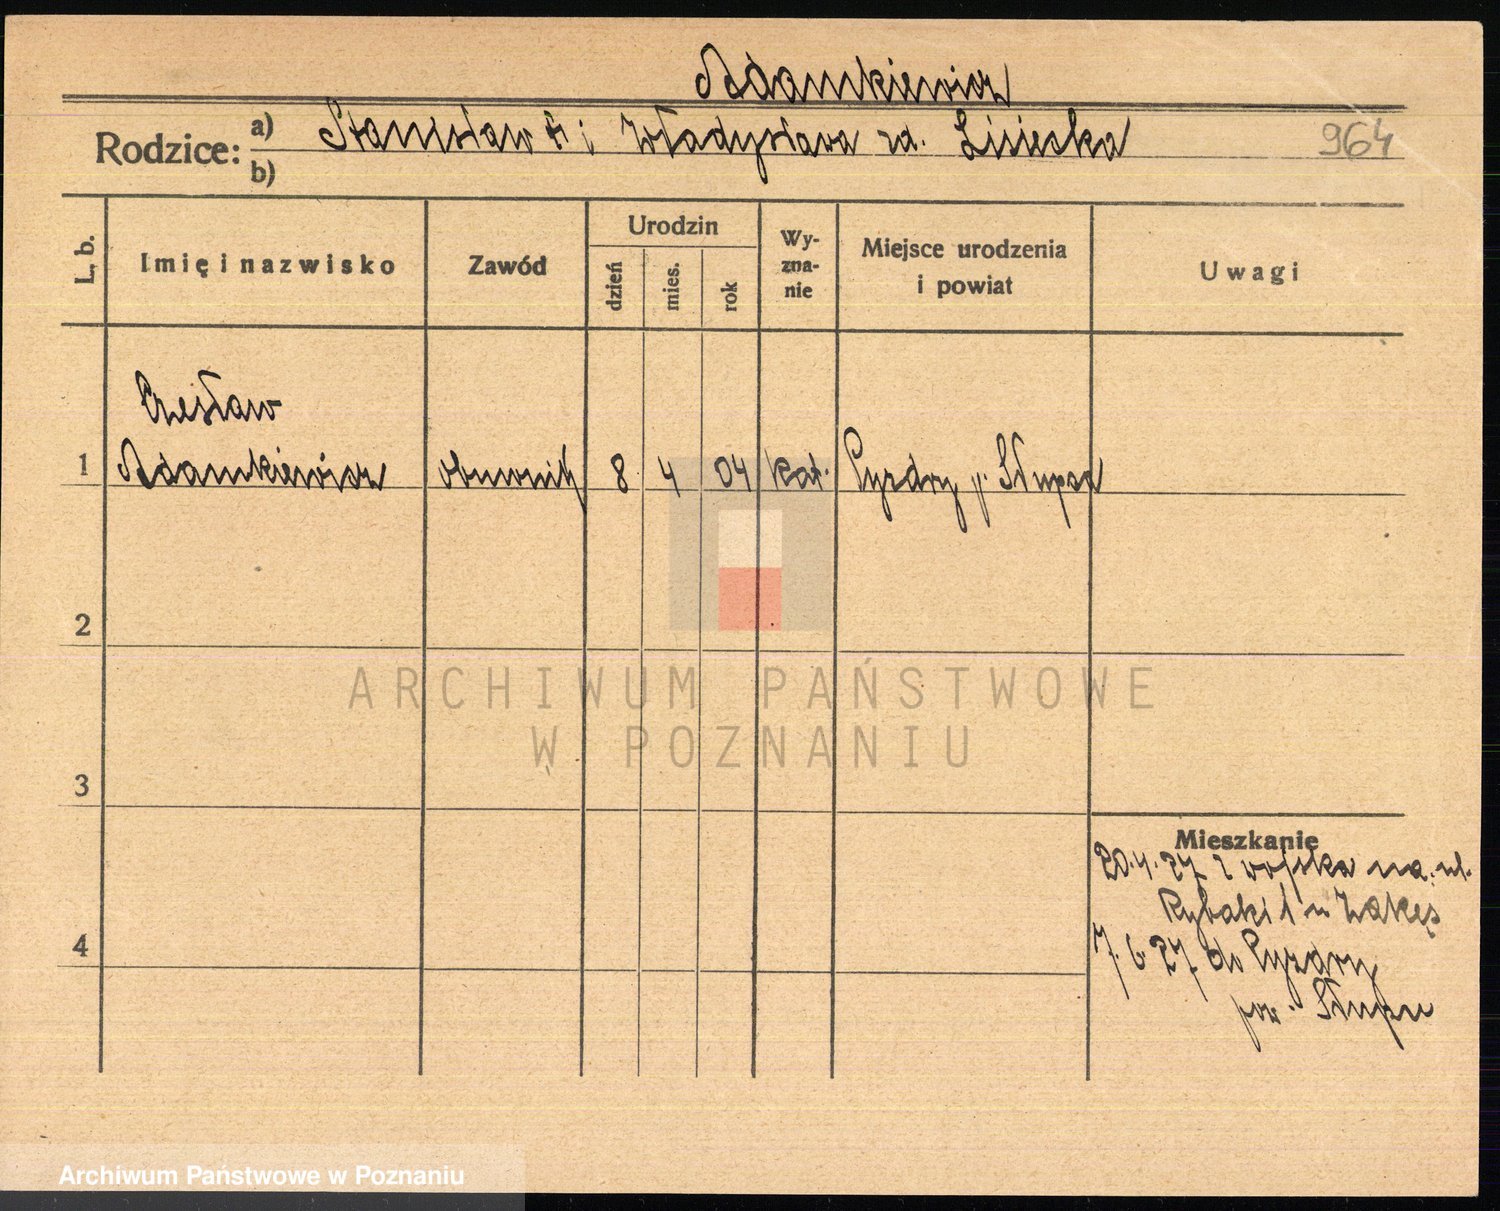 Adamkiewicz
Rodzice: a) Stanisław i Władysława zd. Lisiecka 964
b)
L. b. Imię i nazwisko Zawód Urodzin dzień mies. rok Wy-zna-nie Miejsce urodzenia i powiat Uwagi
Czesław
1 Adamkiewicz obuwnik 8 4 04 kat. Pyzdry p. Słupca
2
ARCHIWUM PAŃSTWOWE
W POZNANIU
3
Mieszkanie
20.4.27 z wojska na ul.
Rybaki 1 u Zakęs
4
7.6.27 do Pyzdry
pow. Słupcu
Archiwum Państwowe w Poznaniu